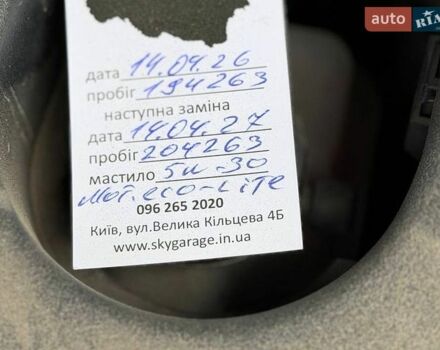 auto RIA
дата 14.04.26
пробіг 194263
наступна заміна
дата 14.04.27
пробіг 204263
мастило 5w-30
Mot. eco-Lite
096 265 2020
Київ, вул.Велика Кільцева 4Б
www.skygarage.in.ua